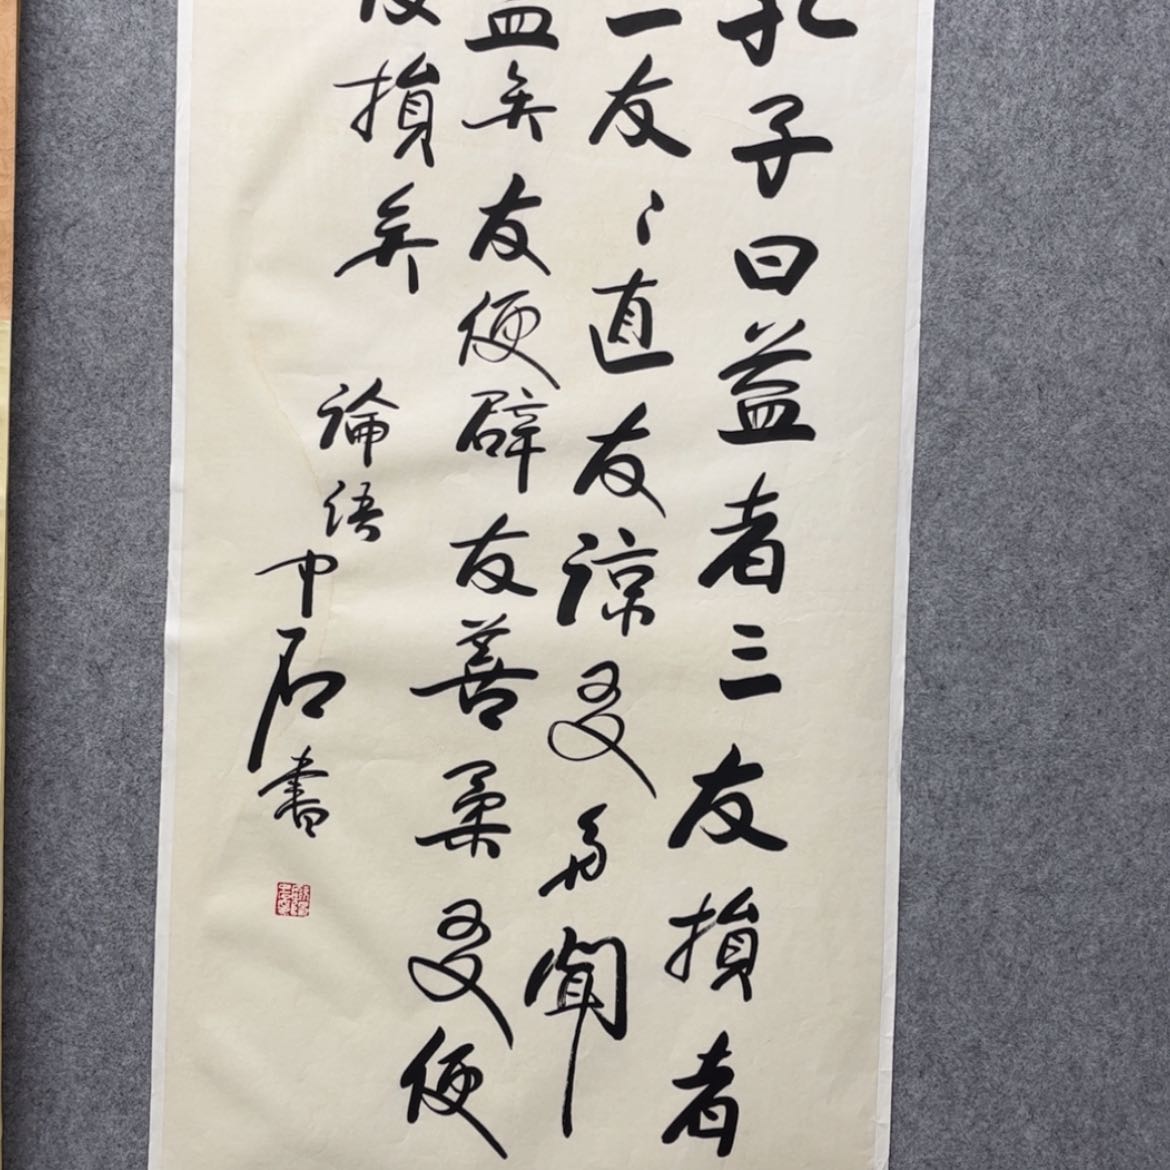 孔子曰益者三友損者
三友〻直友諒友多聞
益矣友便辟友善柔友便
損矣
論語
中石書